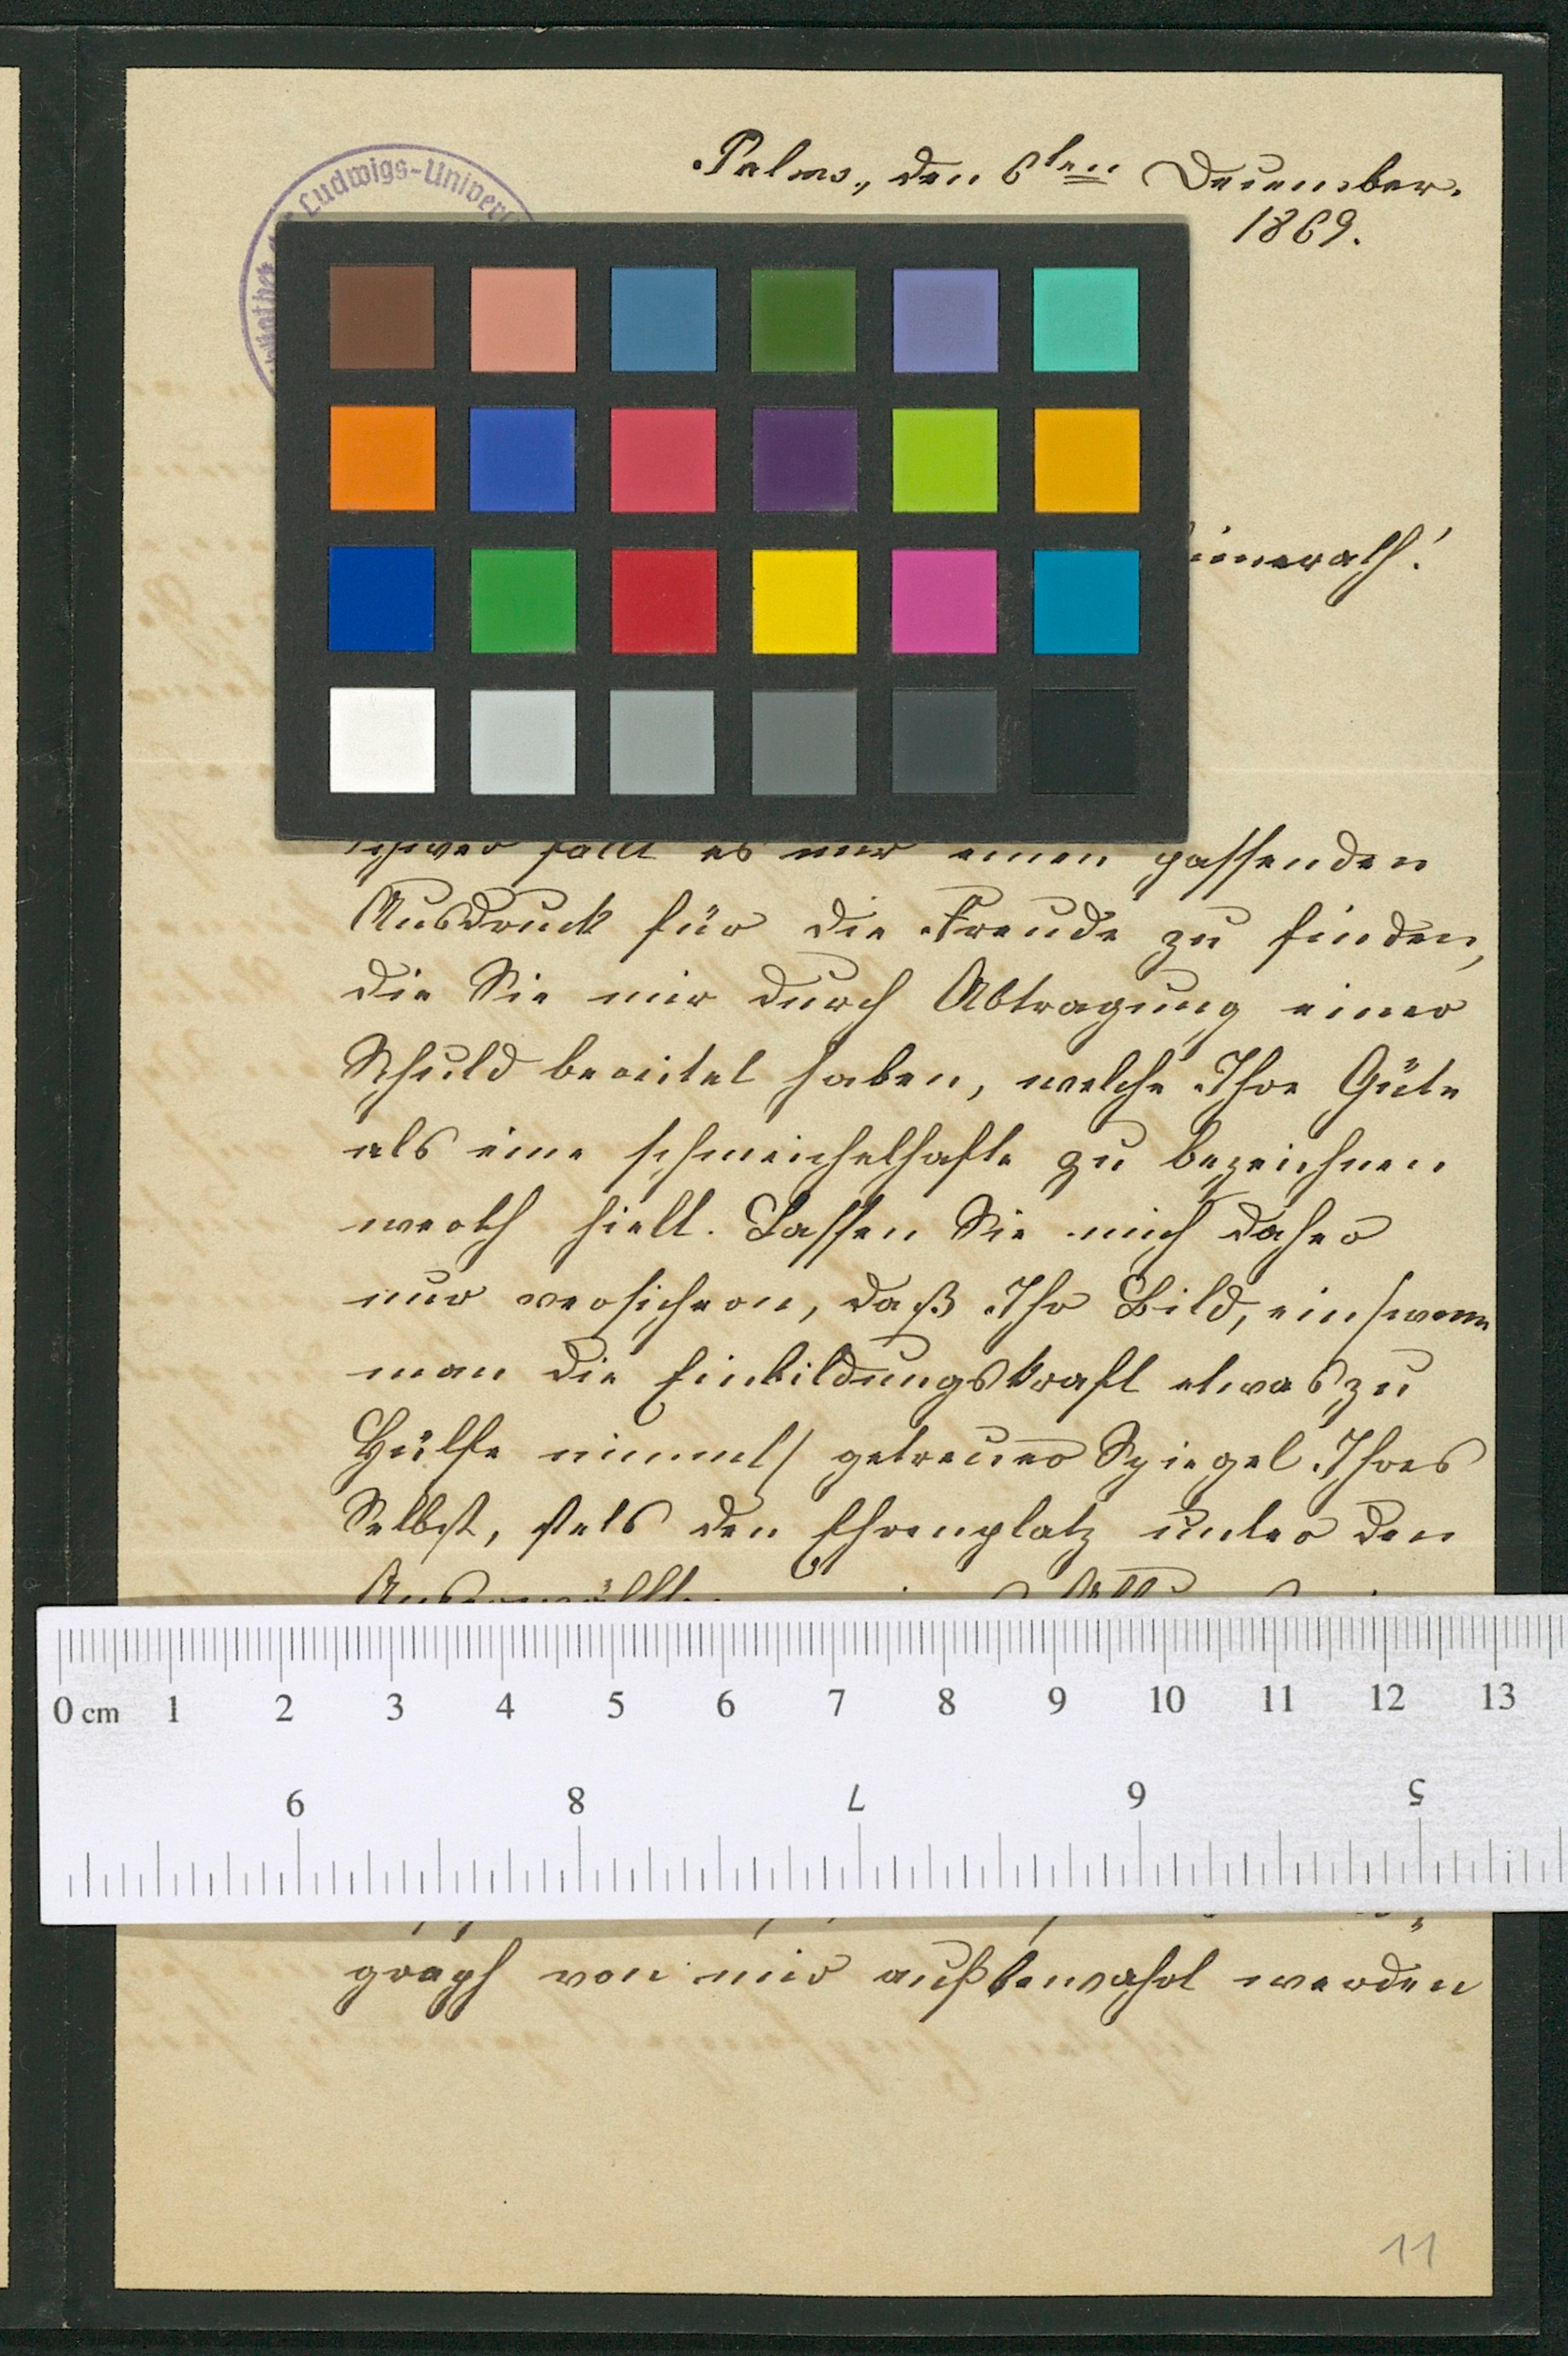 Palms, den 6ten December.
1869.
Ludwigs-Univer
schwer fällt es mir einen passenden
Ausdruck für die Freude zu finden,
die Sie mir durch Abtragung einer
Schuld bereitet haben, welche Ihre Güte
als eine schmeichelhafte zu bezeichnen
werth hielt. Lassen Sie mich daher
nur versichern, daß Ihr Bild, ein/wenn
man die Einbildungskraft etwas zu
Hülfe nimmt/ getreuer Spiegel Ihres
Selbst, stets den Ehrenplatz unter den
0 cm 1 2 3 4 5 6 7 8 9 10 11 12 13
9 8 7 6 5
graph von mir aufbewahrt werden
11